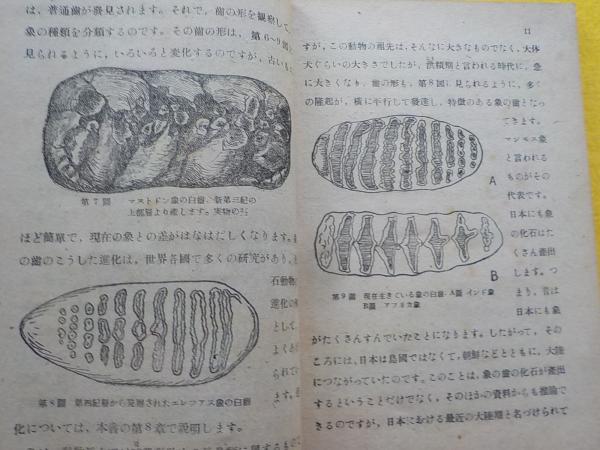 は、普通歯が發見されます。それで、歯の形を観察して、
象の種類を分類するのです。その歯の形は、第6〜9圖
見られるように、いろいろと変化するのですが、古いも
第7圖 マストドン象の白齒、新第三紀の
上部層より産します。実物の⅔
ほど簡單で、現在の象との差がはなはだしくなります。
の歯のこうした進化は、世界各國で多くの研究があり、
石動物
進化の
として、
よく
ます。
第8圖 第四紀層から発掘されたエレファス象の白齒
化については、本書の第8章で説明します。
11
すが、この動物の祖先は、そんなに大きなものでなく、大体
犬ぐらいの大きさでしたが、洪積期と言われる時代に、急
に大きくなり、歯の形も、第8圖に見られるように、多く
の隆起が、横に平行して發達し、特徴のある象の歯となっ
てきます。
マンモス象
と言われる
ものがその
代表です。
日本にも象
の化石はた
くさん產出
します。つ
まり、昔は
日本にも象
A
B
第9圖 現在生きている象の白齒 A圖 インド象
B圖 アフリカ象
がたくさんすんでいたことになります。したがって、その
ころには、日本は島國ではなくて、朝鮮などとともに、大陸
につながっていたのです。このことは、象の歯の化石が產出
するということだけでなく、そのほかの資料からも推論で
きるのですが、日本における最近の大陸期と名づけられて